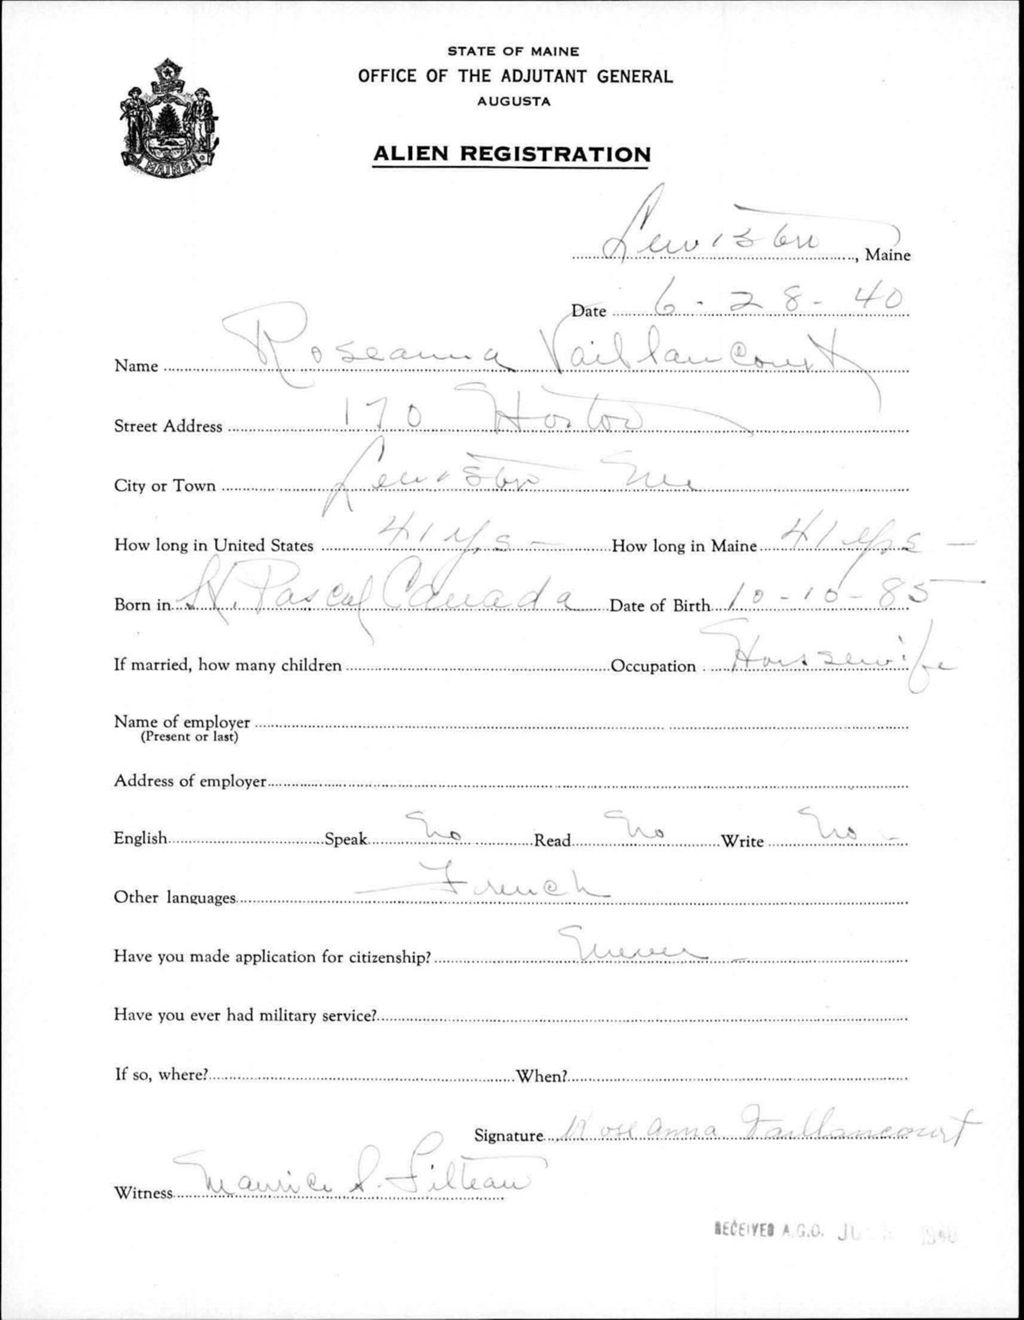 STATE OF MAINE
OFFICE OF THE ADJUTANT GENERAL
AUGUSTA
ALIEN REGISTRATION
MAINE
Lewiston, Maine
Date 6-28-40
Name Roseanna Vaillancourt
Street Address 170 Horton
City or Town Lewiston Me
How long in United States 41 yrs- How long in Maine 41 yrs-
Born in St. Pascal Canada Date of Birth 10-10-85
If married, how many children Occupation Housewife
Name of employer
(Present or last)
Address of employer
English Speak No Read No Write No -
Other languages French
Have you made application for citizenship?
Have you ever had military service?
If so, where? When?
Signature Rose Anna Vaillancourt
Witness Maurice S. Filteau
RECEIVED A.G.O. 1940